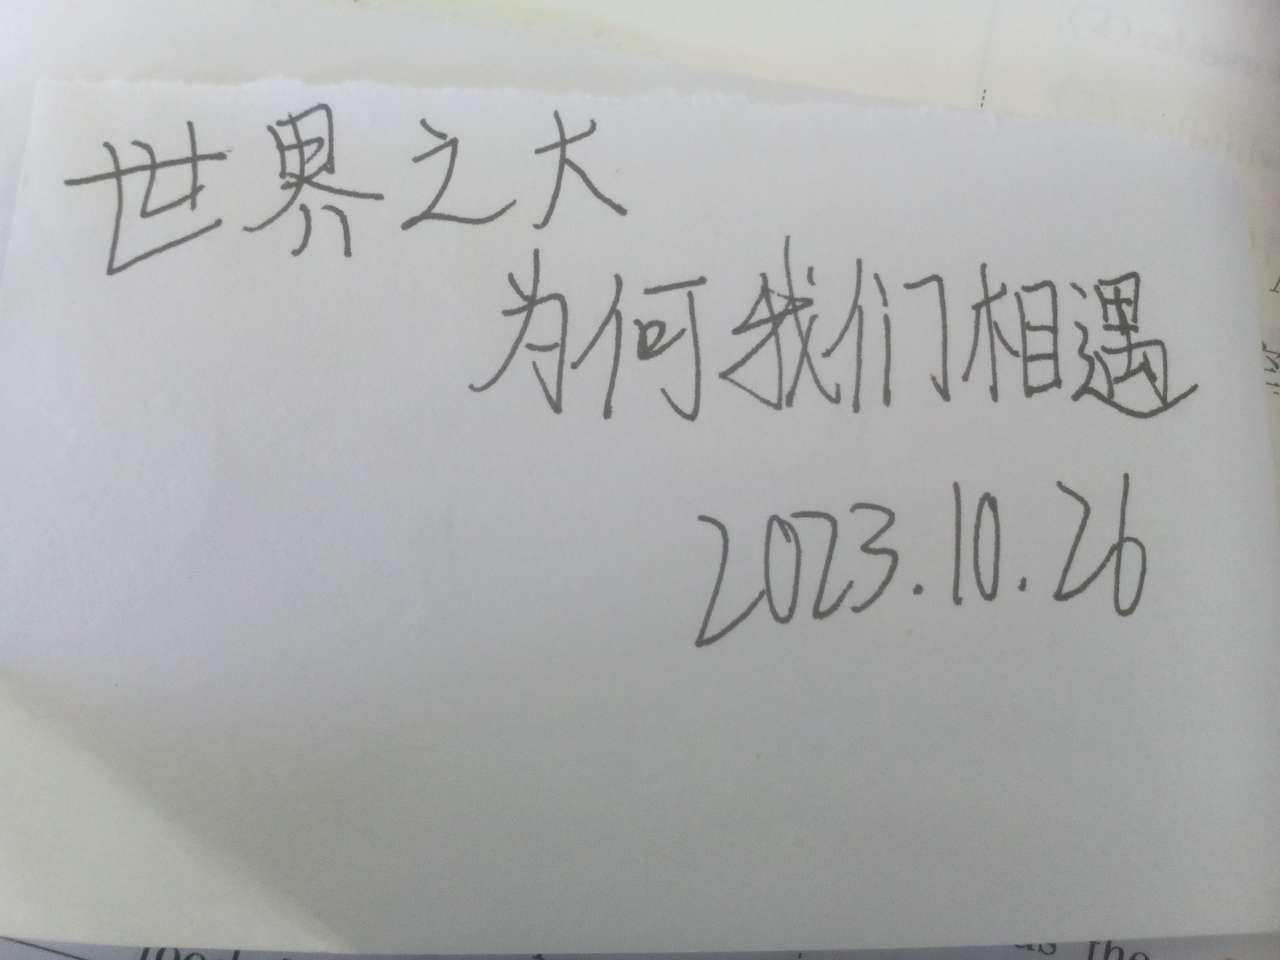 世界之大
为何我们相遇
2023.10.26
as the